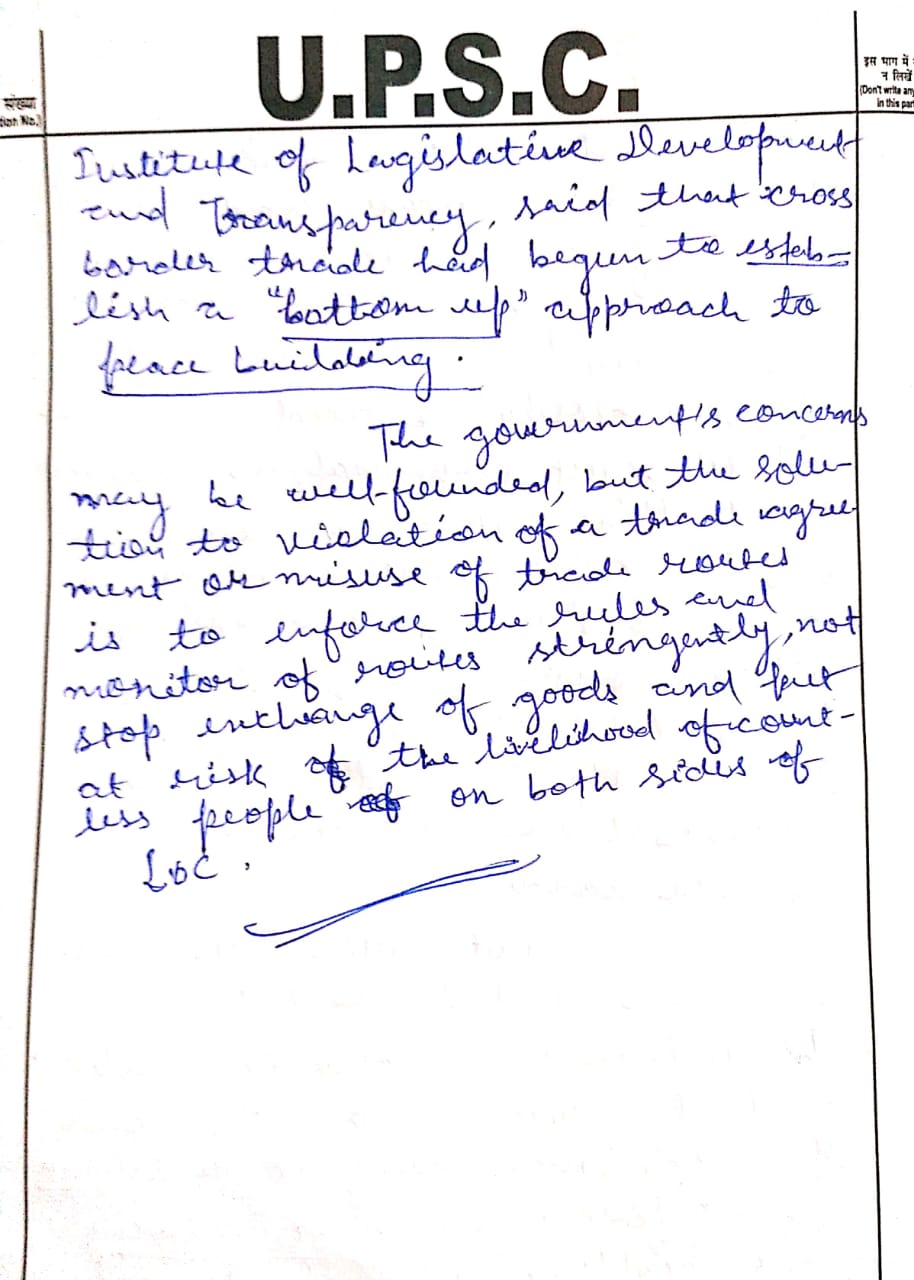 U.P.S.C.
संख्या
tion No.)
इस भाग में
न लिखें
(Don't write any
in this part
Institute of Legislative Development
and Transparency, said that cross
border trade had begun to estab-
lish a "bottom up" approach to
peace building.
The government's concerns
may be well-founded, but the solu-
tion to violation of a trade agree-
ment or misuse of trade routes
is to enforce the rules and
monitor of routes stringently, not
stop exchange of goods and put
at risk of the livelihood of count-
less people of on both sides of
LOC.